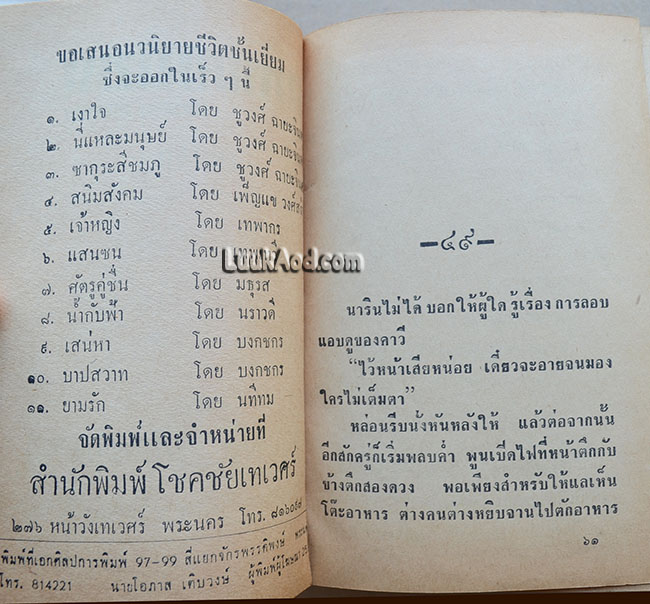 ขอเสนอนวนิยายชีวิตชั้นเยี่ยม
ซึ่งจะออกในเร็ว ๆ นี้
๑. เงาใจ โดย ชูวงศ์ ฉายะจินดา
๒. นี่แหละมนุษย์ โดย ชูวงศ์ ฉายะจินดา
๓. ซากุระสีชมภู โดย ชูวงศ์ ฉายะจินดา
๔. สนิมสังคม โดย เพ็ญแข วงศ์
๕. เจ้าหญิง โดย เทพากร
๖. แสนซน โดย
๗. ศัตรูคู่ชื่น โดย มธุรส
๘. น้ำกับฟ้า โดย นราวดี
๙. เสน่หา โดย บงกชกร
๑๐. บาปสวาท โดย บงกชกร
๑๑. ยามรัก โดย นทีทม
จัดพิมพ์และจำหน่ายที่
สำนักพิมพ์ โชคชัยเทเวศร์
๒๗๖ หน้าวังเทเวศร์ พระนคร โทร. ๘๑๖๐๕๘
พิมพ์ที่เอกศิลปการพิมพ์ 97-99 สี่แยกจักรพรรดิพงษ์
โทร. 814221 นายโอภาส เติบวงษ์ ผู้พิมพ์ผู้โฆษณา
LuukAod.com
–๔๙–
นารินไม่ได้ บอกให้ผู้ใด รู้เรื่อง การลอบ
แอบดูของดาวี
“ไว้หน้าเสียหน่อย เดี๋ยวจะอายจนมอง
ใครไม่เต็มตา”
หล่อนรีบนั่งหันหลังให้ แล้วต่อจากนั้น
อีกสักครู่ก็เริ่มพลบค่ำ พูนเปิดไฟที่หน้าตึกกับ
ข้างตึกสองดวง พอเพียงสำหรับให้แลเห็น
โต๊ะอาหาร ต่างคนต่างหยิบจานไปตักอาหาร
๖๑